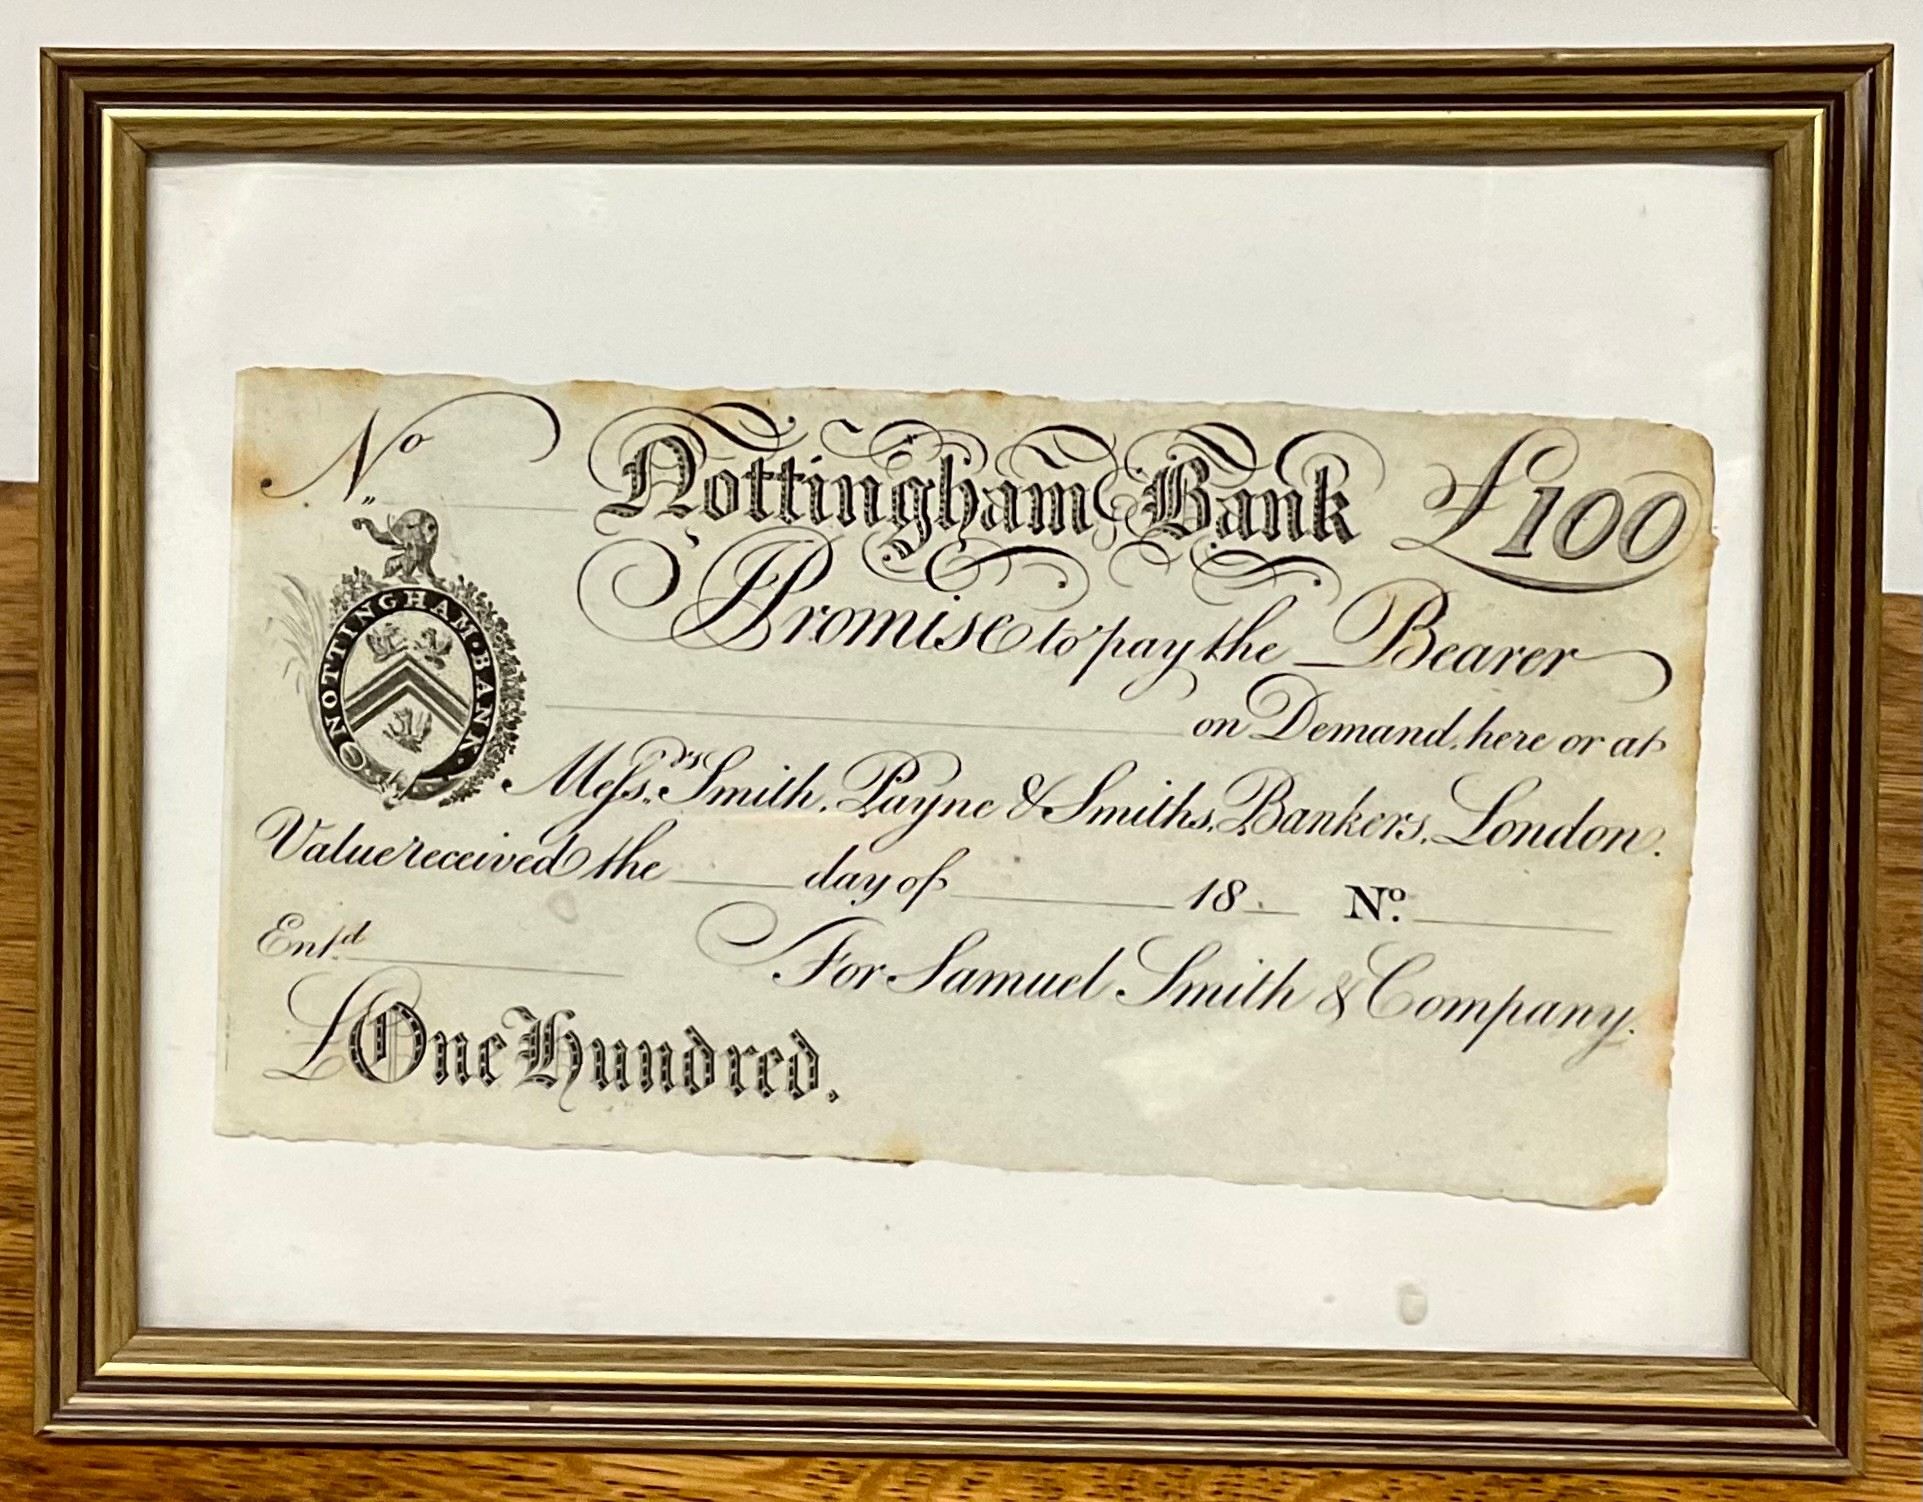 No
Nottingham Bank £100
NOTTINGHAM · BANK ·
Promise to pay the Bearer
on Demand, here or at
Mefs.rs Smith, Payne & Smiths, Bankers, London.
Value received the ___ day of ___ 18__ No. ___
Entd. ___ For Samuel Smith & Company.
£One Hundred.